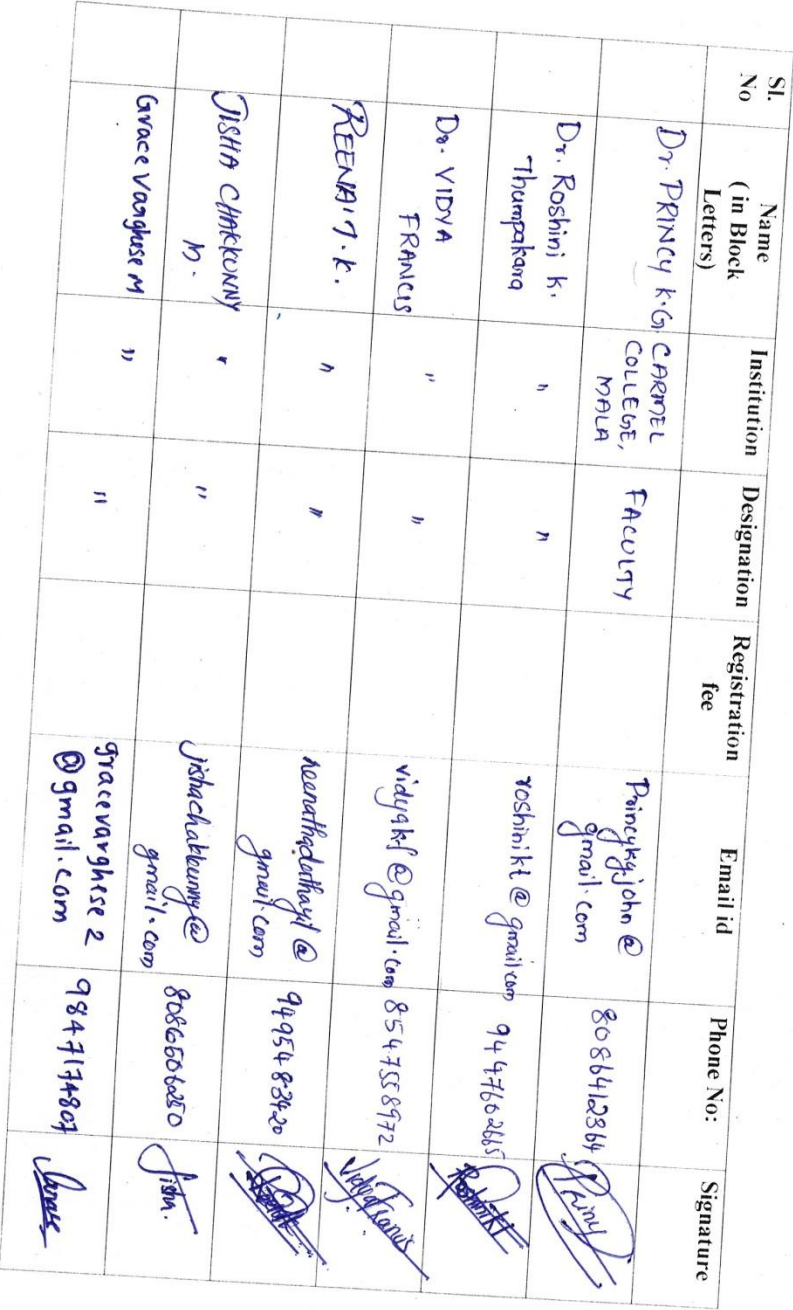 Sl. No
Name ( in Block Letters)
Institution
Designation
Registration fee
Email id
Phone No:
Signature
Dr. PRINCY K.G.
CARMEL
COLLEGE,
MALA
FACULTY
Princykgjohn @
gmail.com
8086412364
Princy
Dr. Roshini K.
Thumpakara
"
"
roshinikt @ gmail.com
9447602665
Roshnikt
Dr. VIDYA
FRANCIS
"
"
vidyakf @ gmail.com
8547558972
Vidya Francis
REENA T. K.
"
"
reenathadathayil @
gmail.com
9495483420
JISHA CHAKKUNNY
M.
"
"
jishachakkunny@
gmail.com
8086506250
Jisha.
Grace Varghese M
"
"
gracevarghese 2
@gmail.com
9847174807